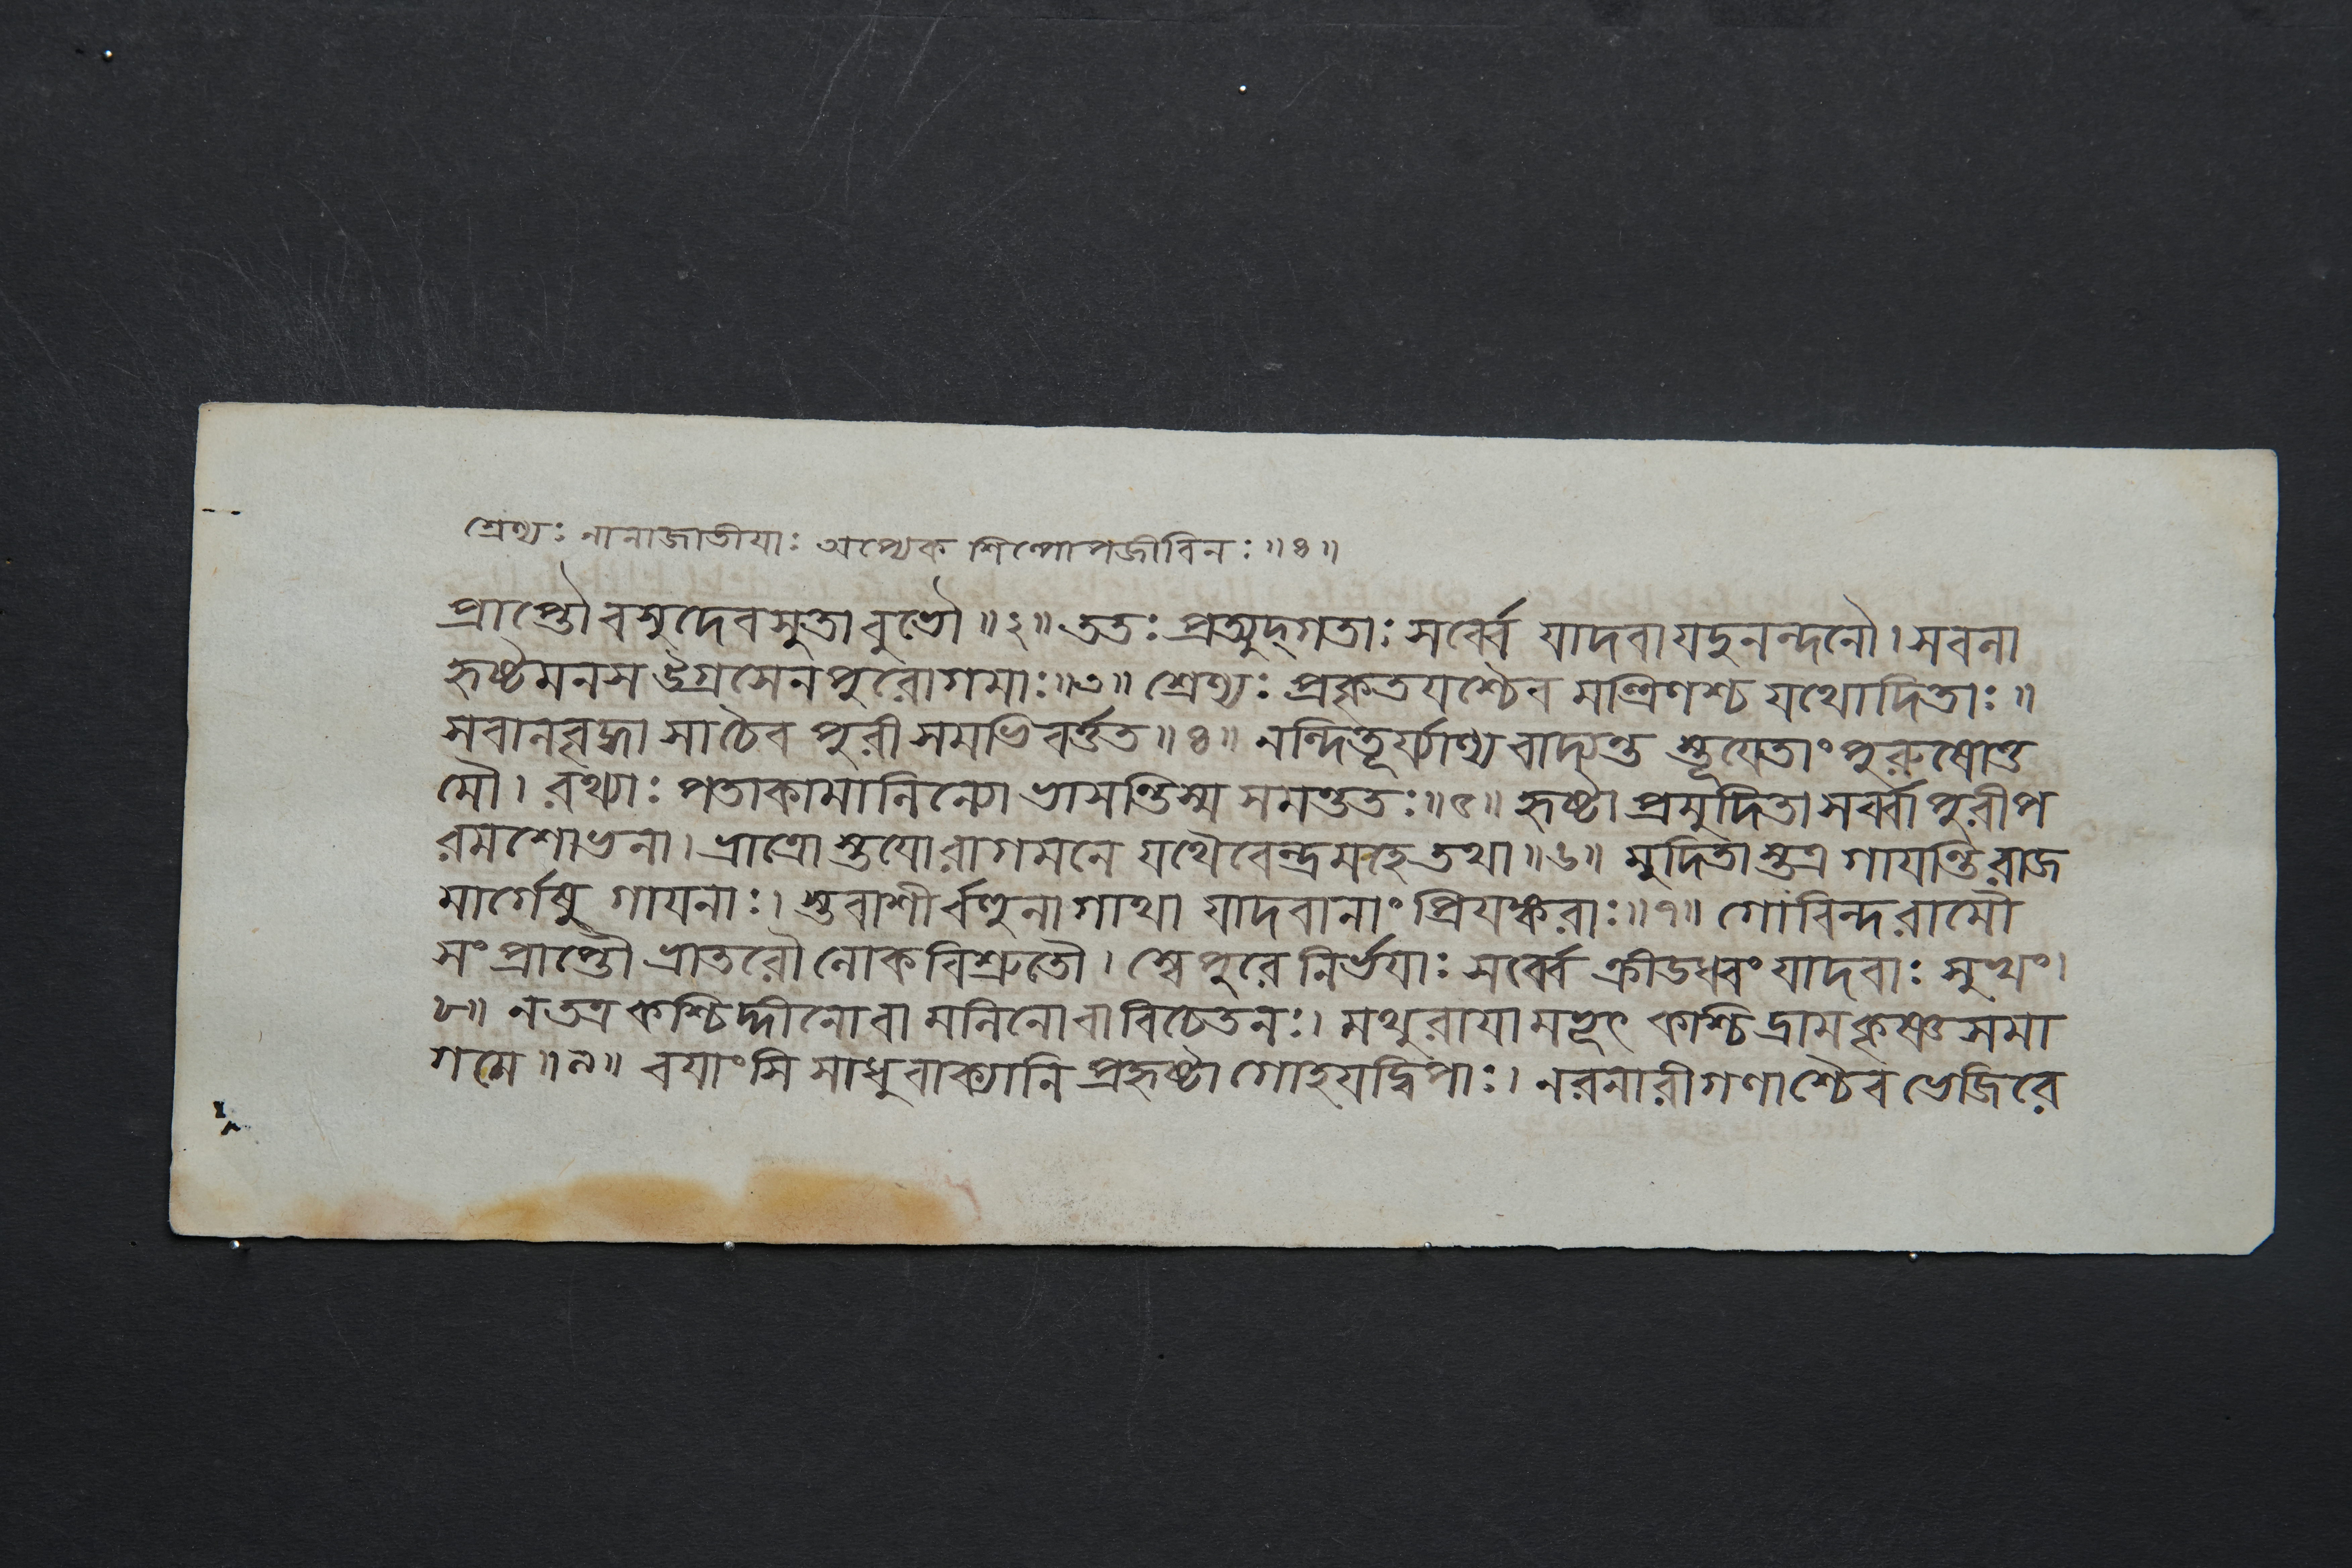 শ্রেণ্যঃ নানাজাতীয়াঃ অপ্যেক শিল্পোপজীবিনঃ॥৪॥
প্রাপ্তৌ বসুদেবসুতাবুভৌ॥২॥ ততঃ প্রত্যুদ্গতাঃ সর্ব্বে যাদবা যদুনন্দনৌ। সবলা
হৃষ্টমনস উগ্রসেনপুরোগমাঃ॥৩॥ শ্রেণ্যঃ প্রকৃতযশ্চৈব মন্ত্রিণশ্চ যথোদিতাঃ॥
সবালবৃদ্ধা সাচৈব পুরী সমভিবর্ত্তত॥৪॥ নন্দিতূর্য্যাণ্য বাদ্যন্ত স্তূযেতাং পুরুষোত্ত
মৌ। রথ্যাঃ পতাকামালিন্যো ভ্রাসন্তিস্ম সমন্ততঃ॥৫॥ হৃষ্টা প্রমুদিতা সর্ব্বা পুরী প
রমশোভনা। ভ্রাত্রোস্তযোরাগমনে যথৈবেন্দ্রমহে তথা॥৬॥ মুদিতাস্তত্র গাযন্তি রাজ
মার্গেষু গাযনাঃ। স্তবাশীর্ব্বহুলা গাথা যাদবানাং প্রিযঙ্করাঃ॥৭॥ গোবিন্দরামৌ
সংপ্রাপ্তৌ ভ্রাতরৌ লোকবিশ্রুতৌ। স্বে পুরে নির্ভযাঃ সর্ব্বে ক্রীডধ্বং যাদবাঃ সুখং।
৮॥ ন তত্র কশ্চিদ্দীনো বা মলিনো বা বিচেতনঃ। মথুরাযামভূৎ কশ্চিদ্রামকৃষ্ণসমা
গমে॥৯॥ বযাংসি সাধুবাক্যানি প্রহৃষ্টা গোহযদ্বিপাঃ। নরনারীগণাশ্চৈব ভেজিরে